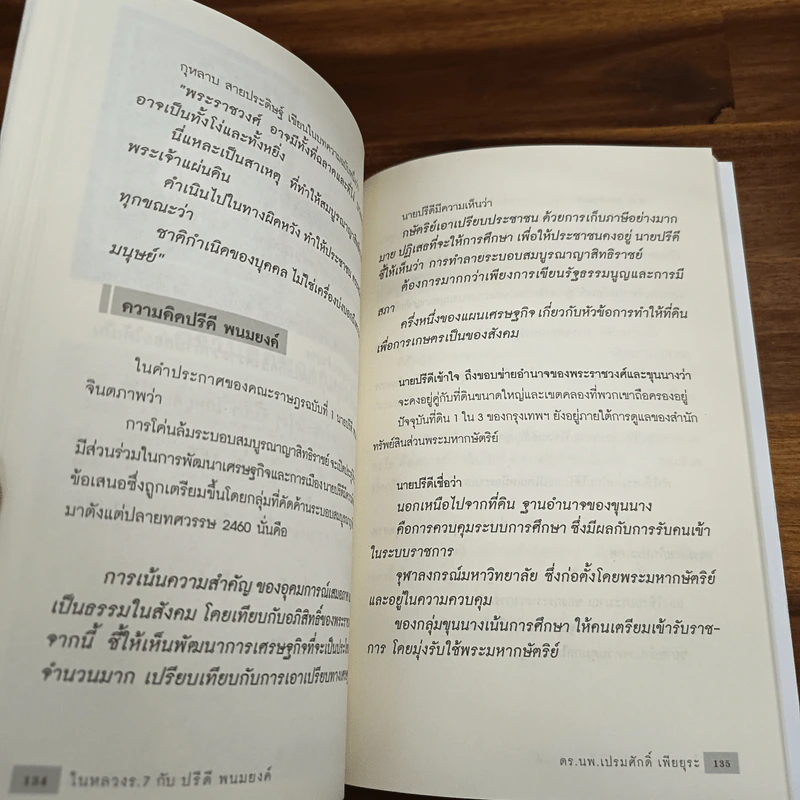 กุหลาบ สายประดิษฐ์ เขียนในบทความ
"พระราชวงศ์ อาจมีทั้งที่ฉลาดและที่โง่
อาจเป็นทั้งโง่และทั้งหยิ่ง
นี่แหละเป็นสาเหตุ ที่ทำให้สมบูรณาญาสิทธิ
พระเจ้าแผ่นดิน
ดำเนินไปในทางผิดหวัง ทำให้ประชาชน
ทุกขณะว่า
ชาติกำเนิดของบุคคล ไม่ใช่เครื่องบ่ง
มนุษย์"
ความคิดปรีดี พนมยงค์
ในคำประกาศของคณะราษฎรฉบับที่ 1 นายปรีดี
จินตภาพว่า
การโค่นล้มระบอบสมบูรณาญาสิทธิราชย์ จะเปิด
มีส่วนร่วมในการพัฒนาเศรษฐกิจและการเมือง นายปรีดี
ข้อเสนอซึ่งถูกเตรียมขึ้นโดยกลุ่มที่คัดค้านระบอบสมบูรณา
มาตั้งแต่ปลายทศวรรษ 2460 นั่นคือ
การเน้นความสำคัญ ของอุดมการณ์เสมอภาค
เป็นธรรมในสังคม โดยเทียบกับอภิสิทธิ์ของพระรา
จากนี้ ชี้ให้เห็นพัฒนาการเศรษฐกิจที่จะเป็นประโย
จำนวนมาก เปรียบเทียบกับการเอาเปรียบทางเศรษ
134 ในหลวงร.7 กับ ปรีดี พนมยงค์
นายปรีดีมีความเห็นว่า
กษัตริย์เอาเปรียบประชาชน ด้วยการเก็บภาษีอย่างมาก
มาย ปฏิเสธที่จะให้การศึกษา เพื่อให้ประชาชนคงอยู่ นายปรีดี
ชี้ให้เห็นว่า การทำลายระบอบสมบูรณาญาสิทธิราชย์
ต้องการมากกว่าเพียงการเขียนรัฐธรรมนูญและการมี
สภา
ครึ่งหนึ่งของแผนเศรษฐกิจ เกี่ยวกับหัวข้อการทำให้ที่ดิน
เพื่อการเกษตรเป็นของสังคม
นายปรีดีเข้าใจ ถึงขอบข่ายอำนาจของพระราชวงศ์และขุนนางว่า
จะคงอยู่คู่กับที่ดินขนาดใหญ่และเขตคลองที่พวกเขาถือครองอยู่
ปัจจุบันที่ดิน 1 ใน 3 ของกรุงเทพฯ ยังอยู่ภายใต้การดูแลของสำนัก
ทรัพย์สินส่วนพระมหากษัตริย์
นายปรีดีเชื่อว่า
นอกเหนือไปจากที่ดิน ฐานอำนาจของขุนนาง
คือการควบคุมระบบการศึกษา ซึ่งมีผลกับการรับคนเข้า
ในระบบราชการ
จุฬาลงกรณ์มหาวิทยาลัย ซึ่งก่อตั้งโดยพระมหากษัตริย์
และอยู่ในความควบคุม
ของกลุ่มขุนนางเน้นการศึกษา ให้คนเตรียมเข้ารับราช-
การ โดยมุ่งรับใช้พระมหากษัตริย์
ดร.นพ.เปรมศักดิ์ เพียยุระ 135